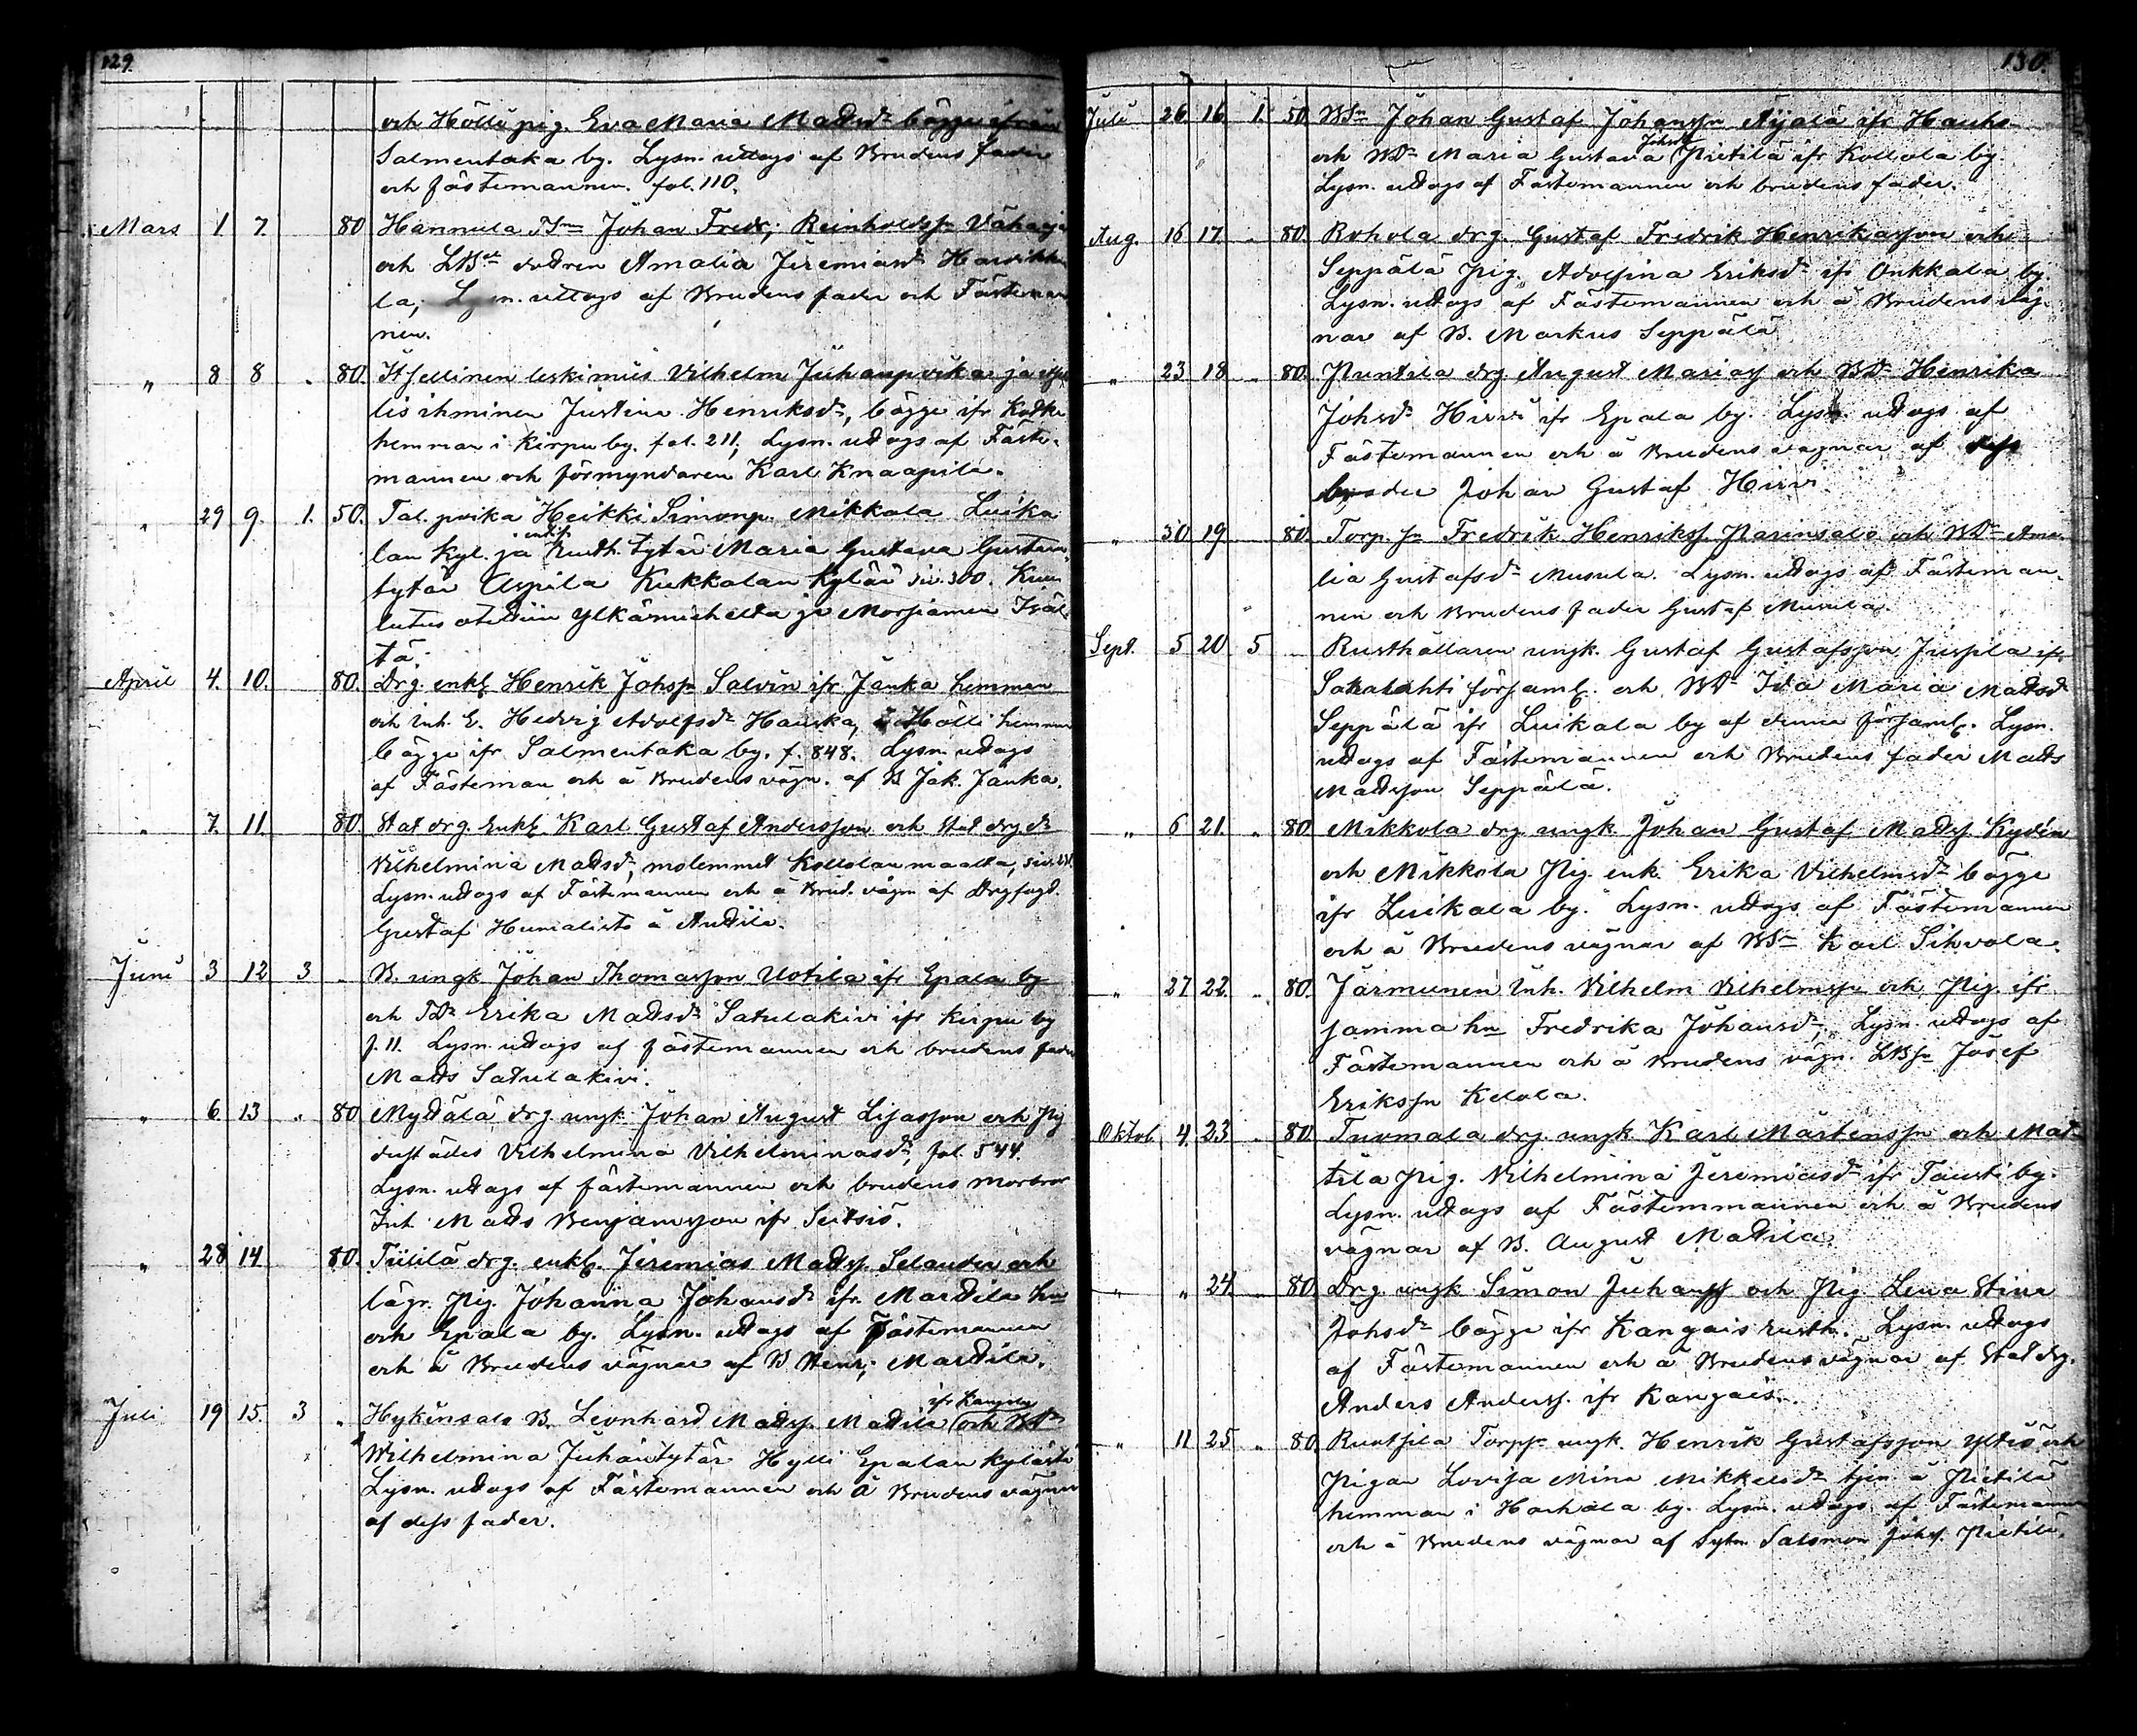 129.
och Hölli pig. Eva Maria Madsdr bägge ifrån
Salmentaka by. Lysn. uttogs af Brudens fader
och fästemannen. fol. 110.
Mars 1 7 80 Hannula TSn Johan Fredr; Reinholdssn
och LBdr dottren Amalia Jeremiasdr
la; Lysn. uttogs af Brudens fader och Fästeman
nen.
" 8 8 . 80. Itsellinen leskimies Vilhelm Juhanpoika ja itsel
lis ihminen Justina Henriksdr, bägge ifr
hemman i Kirpu by. fol. 211; Lysn. uttogs af Fäste-
mannen och förmyndaren Karl Knaapila.
" 29 9. 1. 50. Tal. poika Heikki Simonp. Mikkola Luika
lan kyl. ja entis. Rusth. tytär Maria Gustava Gustaan
tytär Uspila Kukkolan Kylää siv. 300. Kuu
lutus otettiin Yljkämieheltä ja Morsiamen Isäl
tä.
April 4. 10. 80. Drg. enkl. Henrik Johssn Salvin ifr Janka hemman
och Inh. E. Hedvig Adolfsdr Hauska, Hölli hemman
bägge ifr. Salmentaka by. f. 848. Lysn. uttogs
af Fästeman och å Brudens vägn. af B Jak. Janka.
" 7. 11 80. Stat drg. Enkl. Karl Gustaf Andersson och Stat drg dr
Vilhelmina Madsdr, molemmat Kollolan maalta, siv.
Lysn. uttogs af Fästemannen och å Brud. vägn af Drgfogd.
Gustaf Humalisto å Anttila.
Juni 3 12 3 .. B. ungk Johan Thomasson Uotila ifr Epala by
och TDr Erika Madsdr Satulakivi ifr Kirpu by
f. 11. Lysn. uttogs af fästemannen och brudens fader
Mads Satulakivi.
" 6. 13 . 80 Myttälä drg ungk Johan August Lisasson och Pig
dustädes Vilhelmina Vilhelminasdr, fol. 544.
Lysn. uttogs af fästemannen och brudens morbror
Inh. Mads Benjamsson ifr Seitsis.
" 28 14 80. Tiililä drg. enkl. Jeremias Madss. Selander och
lägr. Pig. Johanna Johansdr ifr. Marttila hmn
och Epala by. Lysn. uttogs af Fästemannen
och å Brudens vägnar af B Henr; Marttila.
Juli 19 15. 3 " Hykinsalo B. Leonhard Madss. Mattila ifr Kangala och BDr
Wilhelmina Juhantytär Hylli Epalan kylästä
Lysn. uttogs af Fästemannen och å Brudens vägnar
af dess fader.
130.
Juli 26 16. 1. 50. BSn Johan Gustaf Johanssn Äijälä ifr Hauho
och BDr Maria Gustava Johsdr Pietilä ifr Kollola by
Lysn. uttogs af Fästemannen och brudens fader.
Aug. 16 17. . 80. Rohola drg. Gustaf Fredrik Henriksson och
Seppälä pig. Adolfina Eriksdr ifr Onkkala by.
Lysn. uttogs af Fästemannen och å Brudens väg-
nar af B. Markus Seppälä
" 23 18 . 80. Puntila drg August Mariass och BDr Henrika
Johsdr Hirvi ifr Epala by. Lysn. uttogs af
Fästemannen och å Brudens vägnar af dess
broder Johan Gustaf Hirvi.
" 30 19 80. Torp. sn Fredrik Henrikss. Parinsalo och BDr Ama-
lia Gustafsdr Musula. Lysn. uttogs af Fästeman-
nen och Brudens fader Gustaf Musula.
Sept. 5 20 5 .. Rusthållaren ungk. Gustaf Gustafsson Juspila ifr
Sahalahti församl. och BDr Ida Maria Madsdr
Seppälä ifr Luikala by af denna församl. Lysn.
uttogs af Fästemannen och Brudens fader Mads
Madsson Seppälä.
" 6 21. . 80. Mikkola drg ungk. Johan Gustaf Madss. Kydén
och Mikkola Pig. enk. Erika Vilhelmsdr bägge
ifr Luikala by. Lysn. uttogs af Fästemannen
och å Brudens vägnar af BSn Karl Sihvola.
" 27 22. . 80. Järmunen Inh. Vilhelm Vilhelmssn och Pig. ifr
samma hn Fredrika Johansdr; Lysn. uttogs af
Fästemannen och å Brudens vägn. LBSn Josef
Erikssn Kelola.
Oktob. 4. 23 . 80. Tuomala drg. ungk Karl Mårtenssn och Mat-
tila pig. Vilhelmina Jeremiasdr ifr Tausti by.
Lysn. uttogs af Fästemmannen och å Brudens
vägnar af B. August Mattila.
" " 24. 80. Drg. ungk Simon Juhanss och Pig. Lena Stina
Johsdr bägge ifr Kangais rusth. Lysn. uttogs
af Fästemannen och å Brudens vägnar af Stat drg.
Anders Anderss. ifr Kangais.
" 11 25. . 80. Ruotsila Torpp. ungk. Henrik Gustafsson Yltiö och
Pigan Lovisa Mina Mikkelsdr tjen. å Pietilä
hemman i Hauhiala by. Lysn. uttogs af Fästemannen
och å Brudens vägnar af Sytn. Salomon Johss. Pietilä.